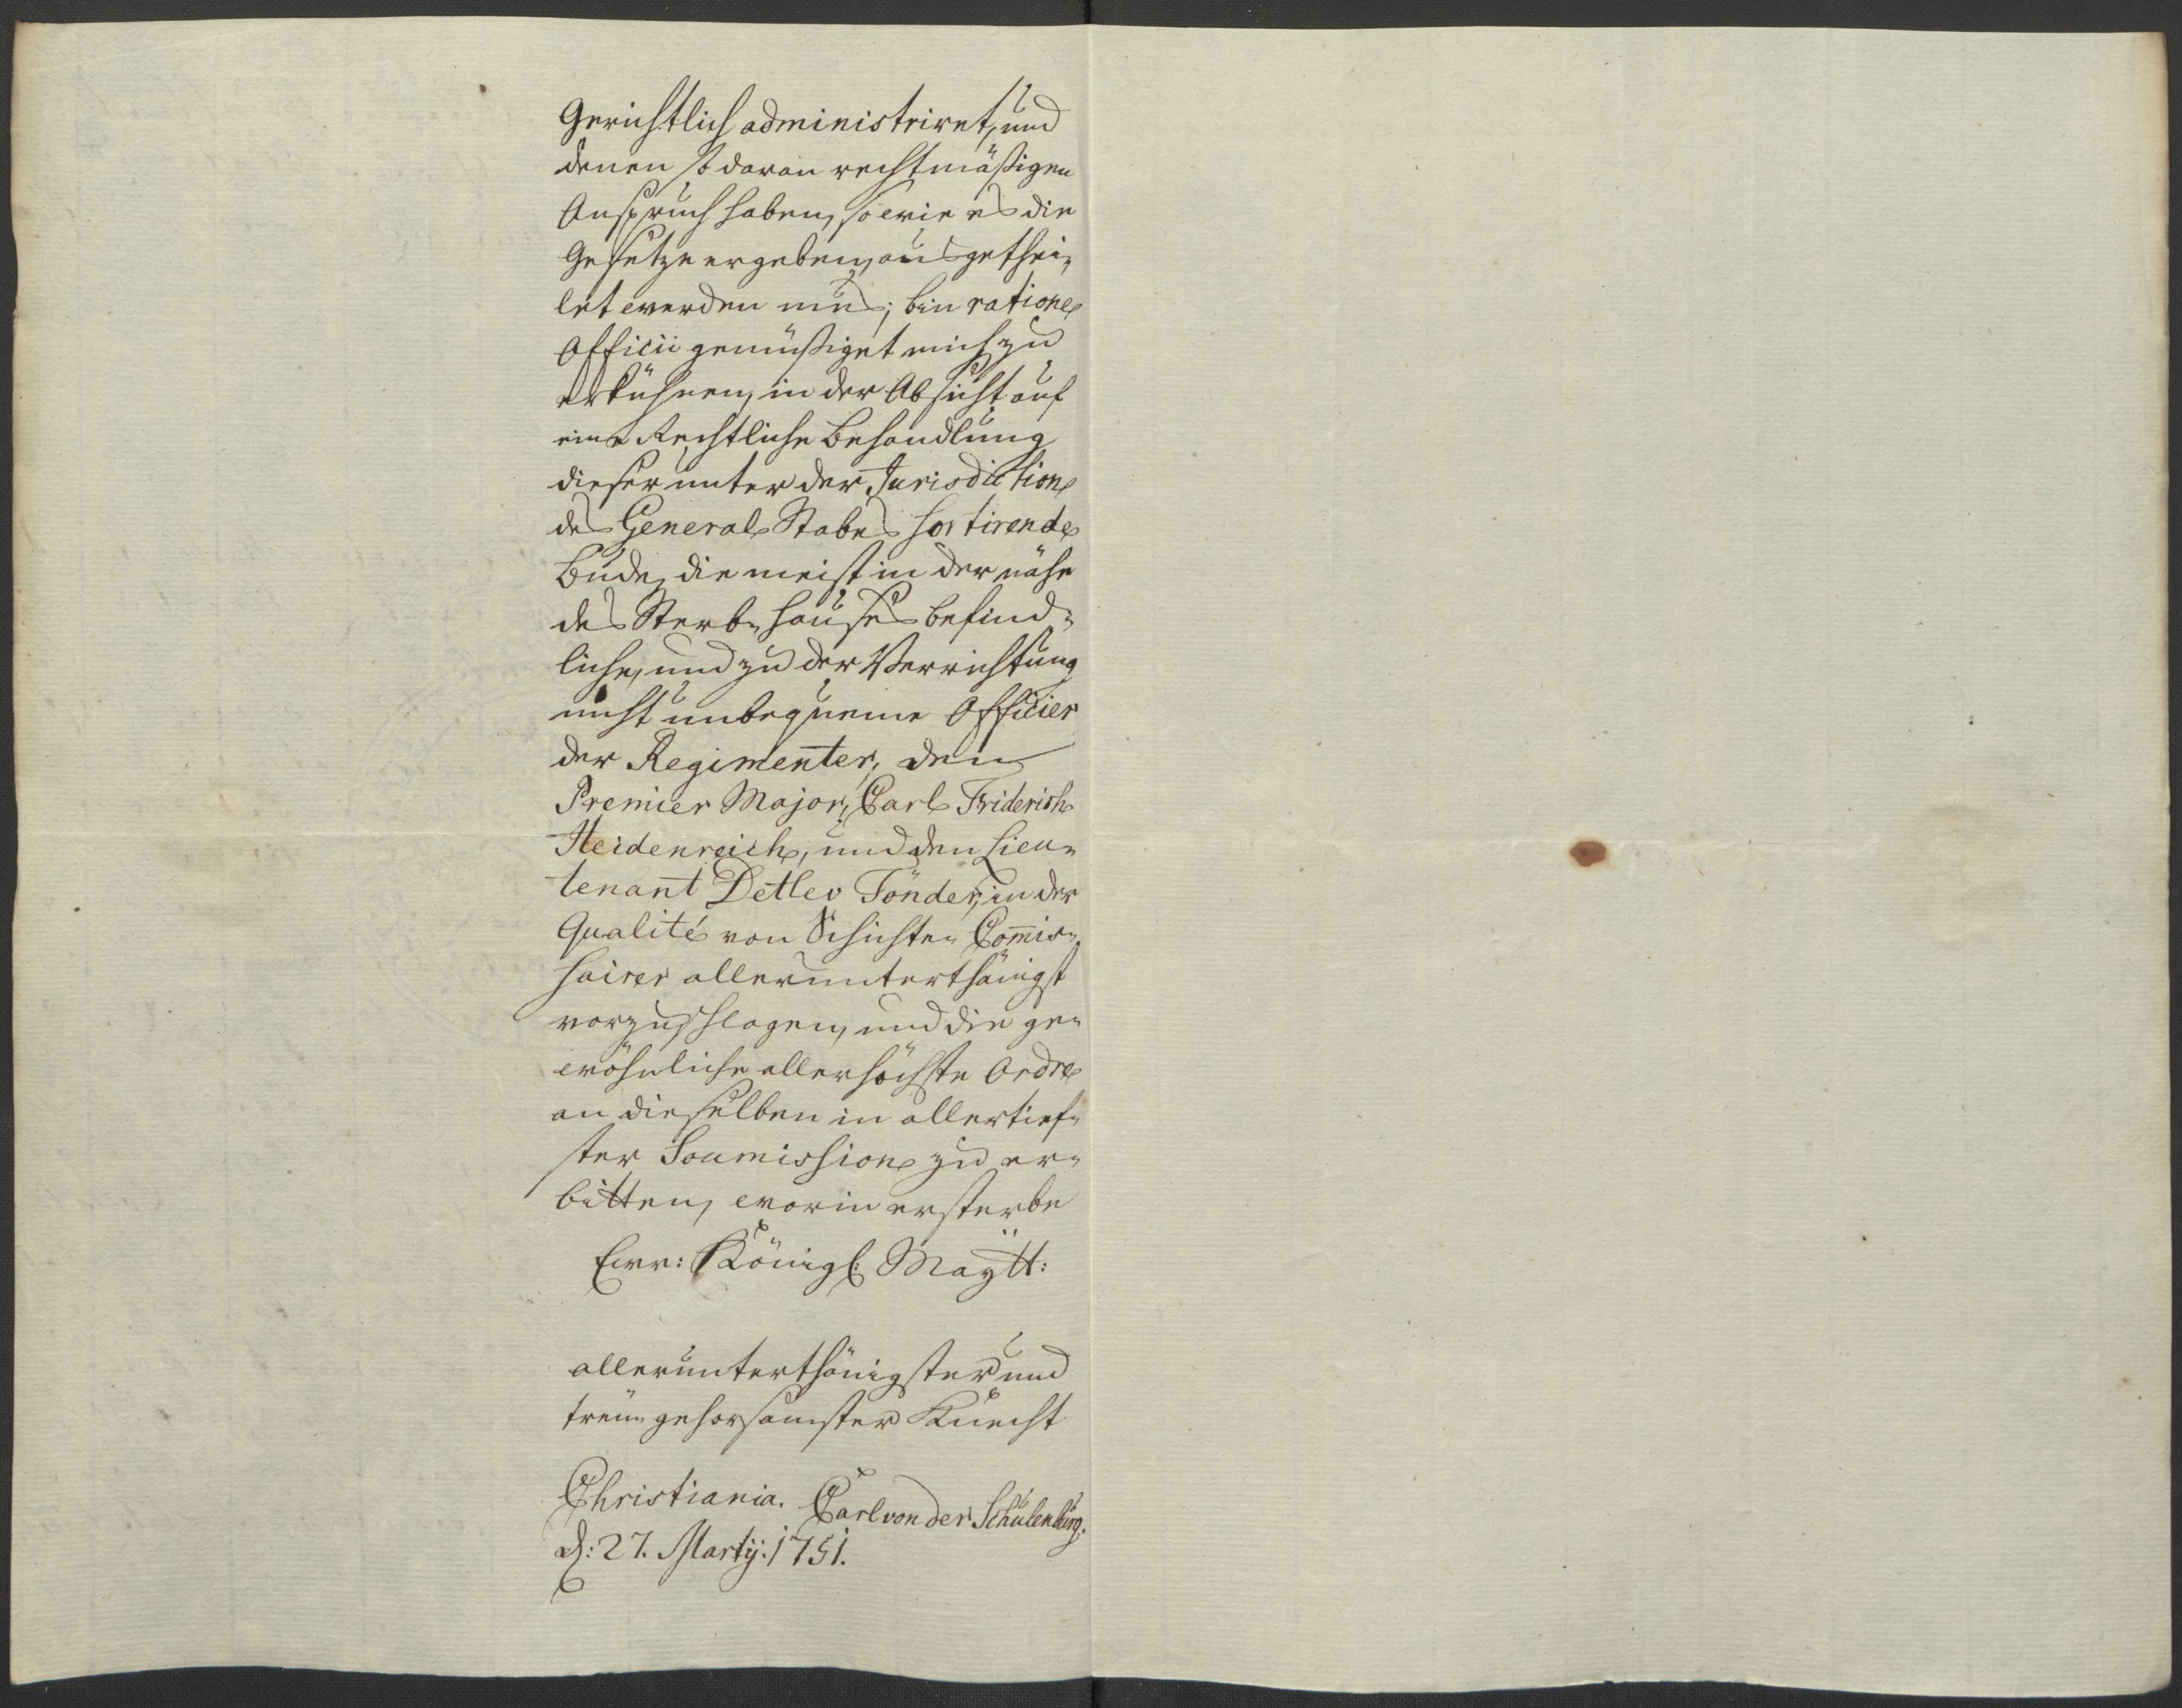 Gerichtlich administriret, und
denen so daran rechtmäßigen
Anspruch haben, so wie es die
Gesetze ergeben, ausgethei-
let werden mus; bin ratione
Officii gemüßiget mich zu
erkühnen, in der Absicht auf
eine Rechtliche Behandlung
dieser unter der Jurisdiction
des General Stabes sortirende
Bude, die meist in der nähe
des Sterb-Hauses befind-
liche, und zu der Verrichtung
nicht unbequeme Officier
der Regimenter, den
Premier Major, Carl Friderich
Heidenreich, und den Lieu-
tenant Detlev Tönder, in der
Qualité von Schichte-Com̄is-
sairer allerunterthänigst
vorzuschlagen, und die ge-
wöhnliche allerhöchste Ordre
an dieselben in allertief-
ster Soumission zu er-
bitten, worin ersterbe
Ewr: Königl: Maÿtt:
allerunterthänigster und
treu-gehorsamster Knecht
Christiania. Carl von der Schulenburg.
d: 27. Martij. 1751.